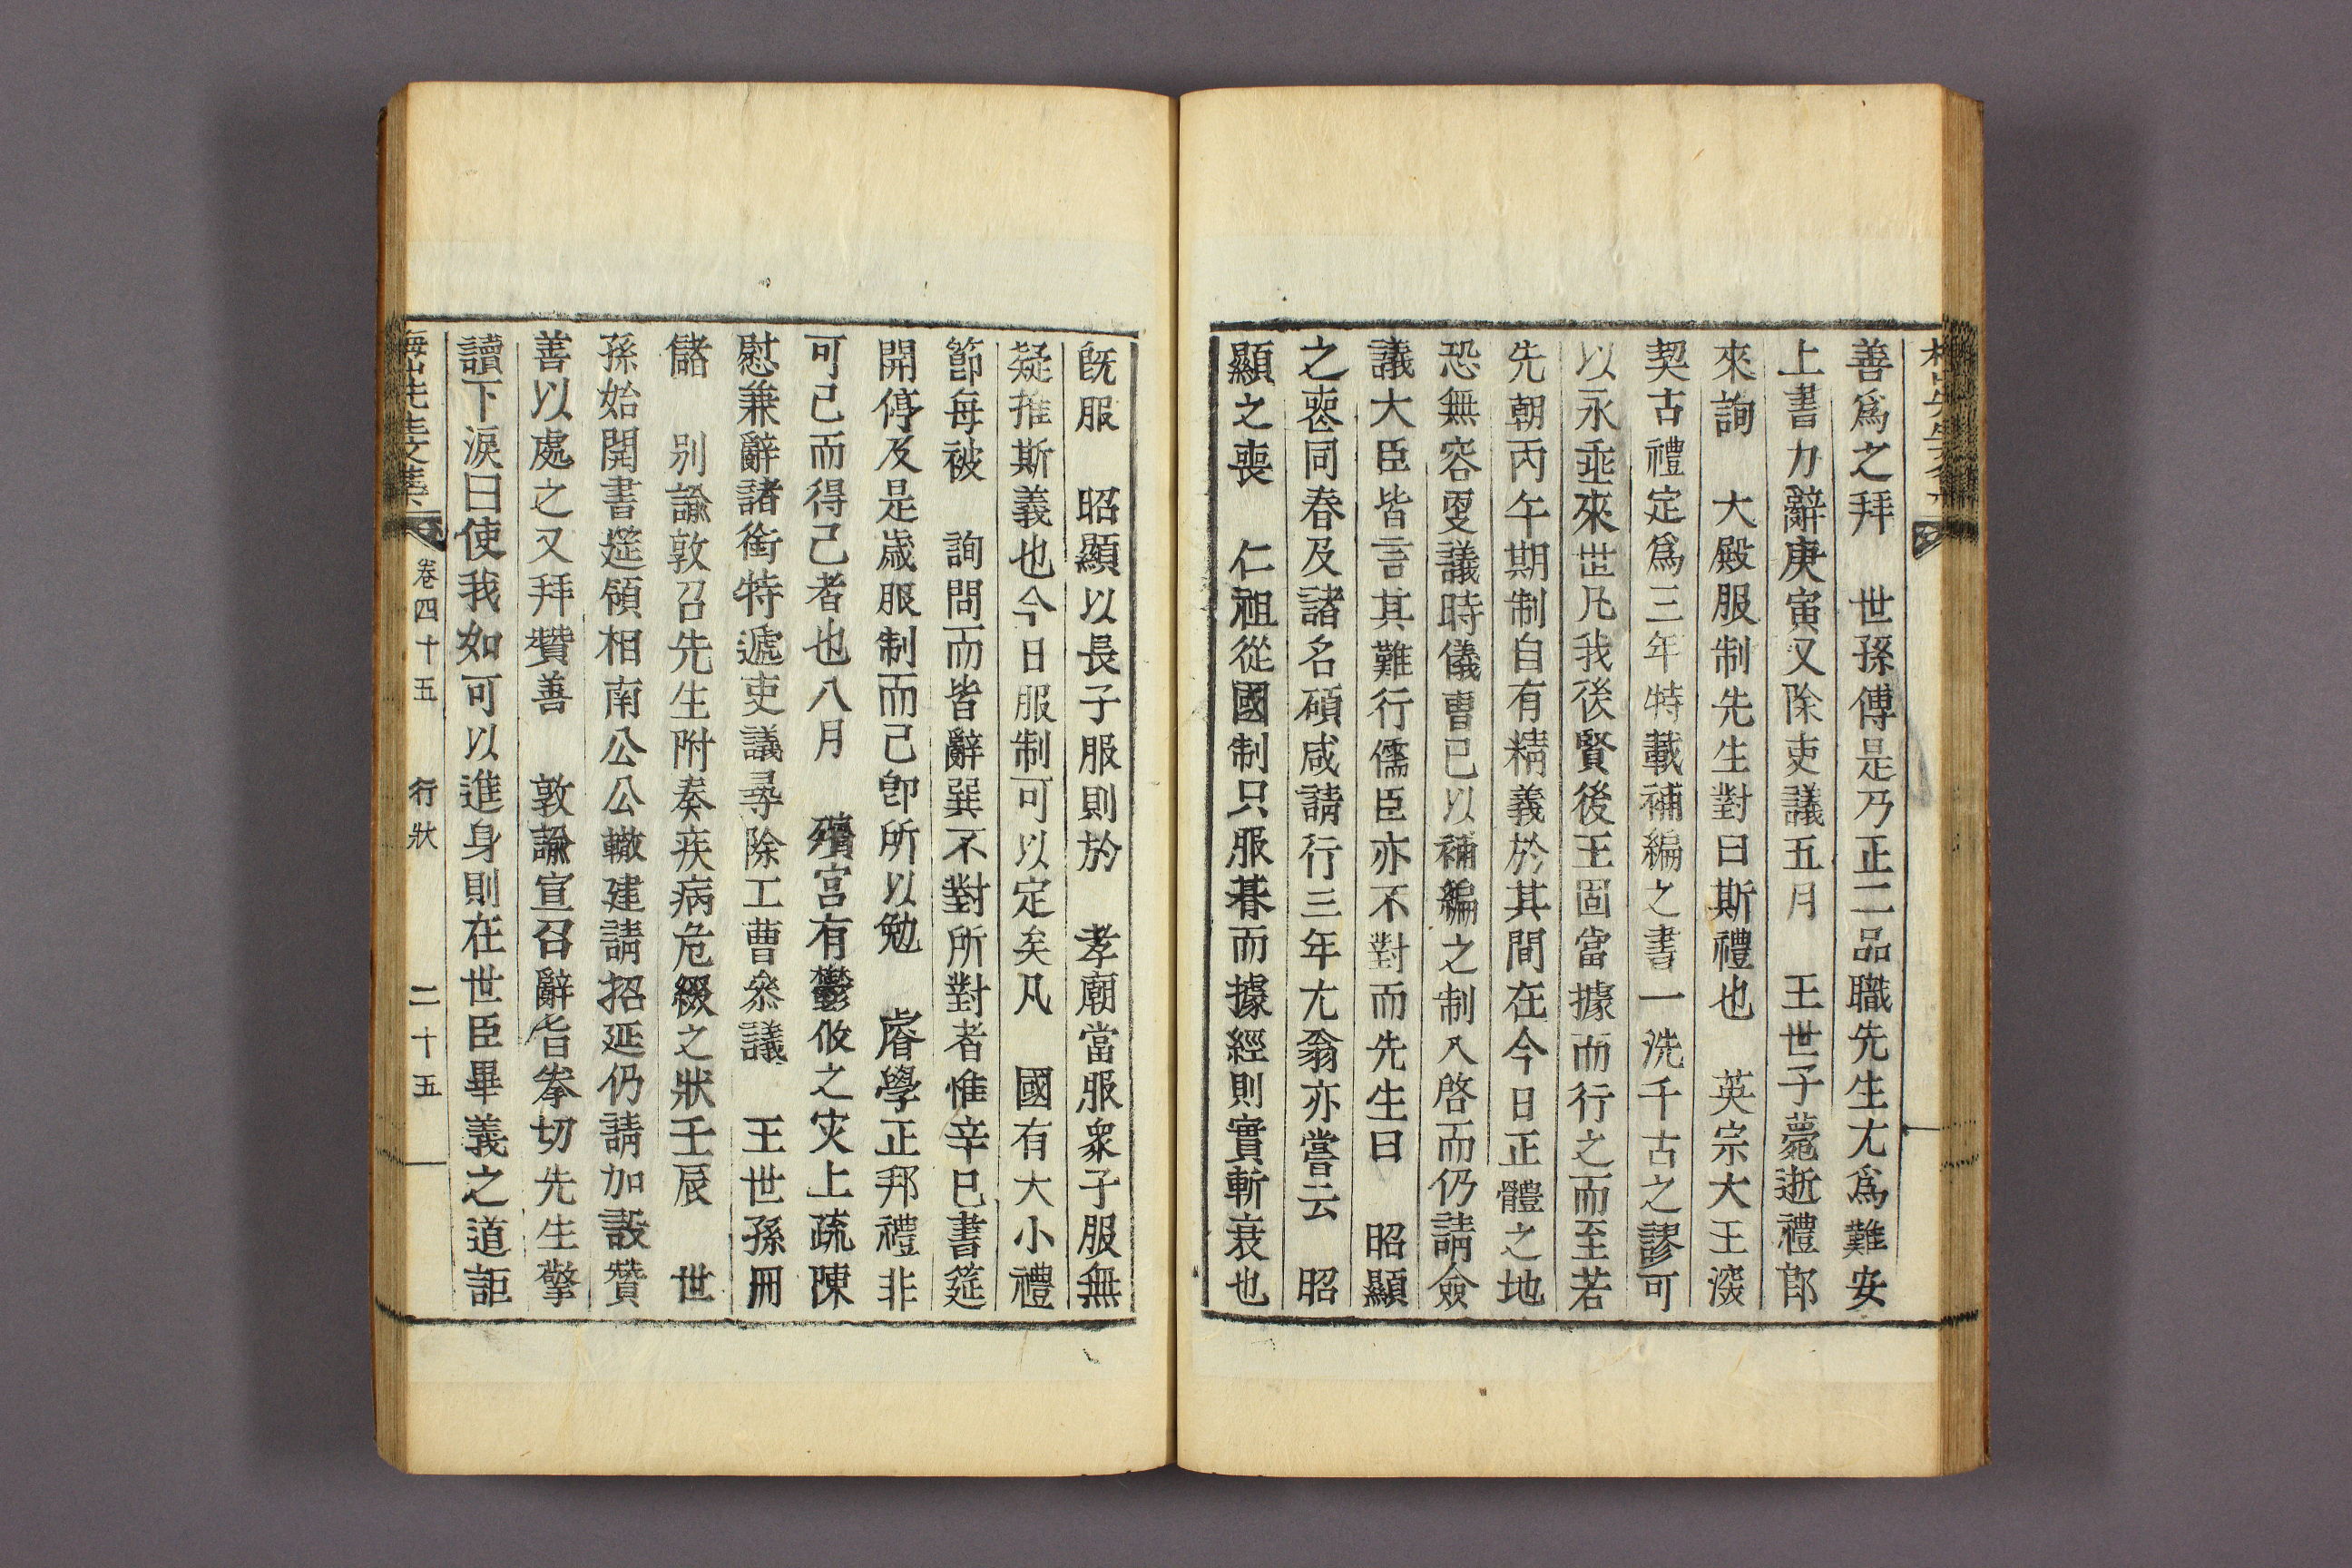 善爲之拜　世孫傅是乃正二品職先生尤爲難安
上書力辭庚寅又除吏議五月　王世子薨逝禮郎
來詢　大殿服制先生對曰斯禮也　英宗大王深
契古禮定爲三年特載補編之書一洗千古之謬可
以永垂來世凡我後賢後王固當據而行之而至若
先朝丙午期制自有精義於其間在今日正體之地
恐無容更議時儀曹已以補編之制入啓而仍請僉
議大臣皆言其難行儒臣亦不對而先生曰　昭顯
之喪同春及諸名碩咸請行三年尤翁亦嘗云　昭
顯之喪　仁祖從國制只服朞而據經則實斬衰也
旣服　昭顯以長子服則於　孝廟當服衆子服無
疑推斯義也今日服制可以定矣凡　國有大小禮
節每被　詢問而皆辭巽不對所對者惟辛巳書筵
開停及是歲服制而已卽所以勉　睿學正邦禮非
可已而得已者也八月　殯宮有鬱攸之灾上疏陳
慰兼辭諸銜特遞吏議尋除工曹叅議　王世孫冊
儲　別諭敦召先生附奏疾病危綴之狀壬辰　世
孫始開書筵領相南公公轍建請招延仍請加設贊
善以處之又拜贊善　敦諭宣召辭旨峯切先生擎
讀下淚曰使我如可以進身則在世臣畢義之道詎
梅山先生文集　卷四十五　行狀　二十五